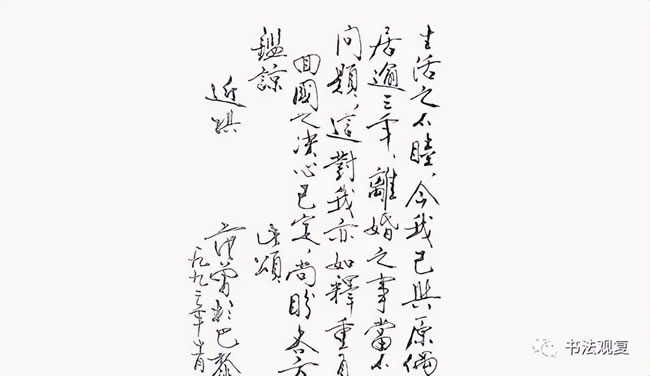 生活之不睦，今我已與原偶
居逾三年、離婚之事當不
问題，這對我亦如釋重負
回國之决心已定，尚盼各方
鑑諒
遥頌
近祺
范曾於巴黎
一九九三年
书法观复